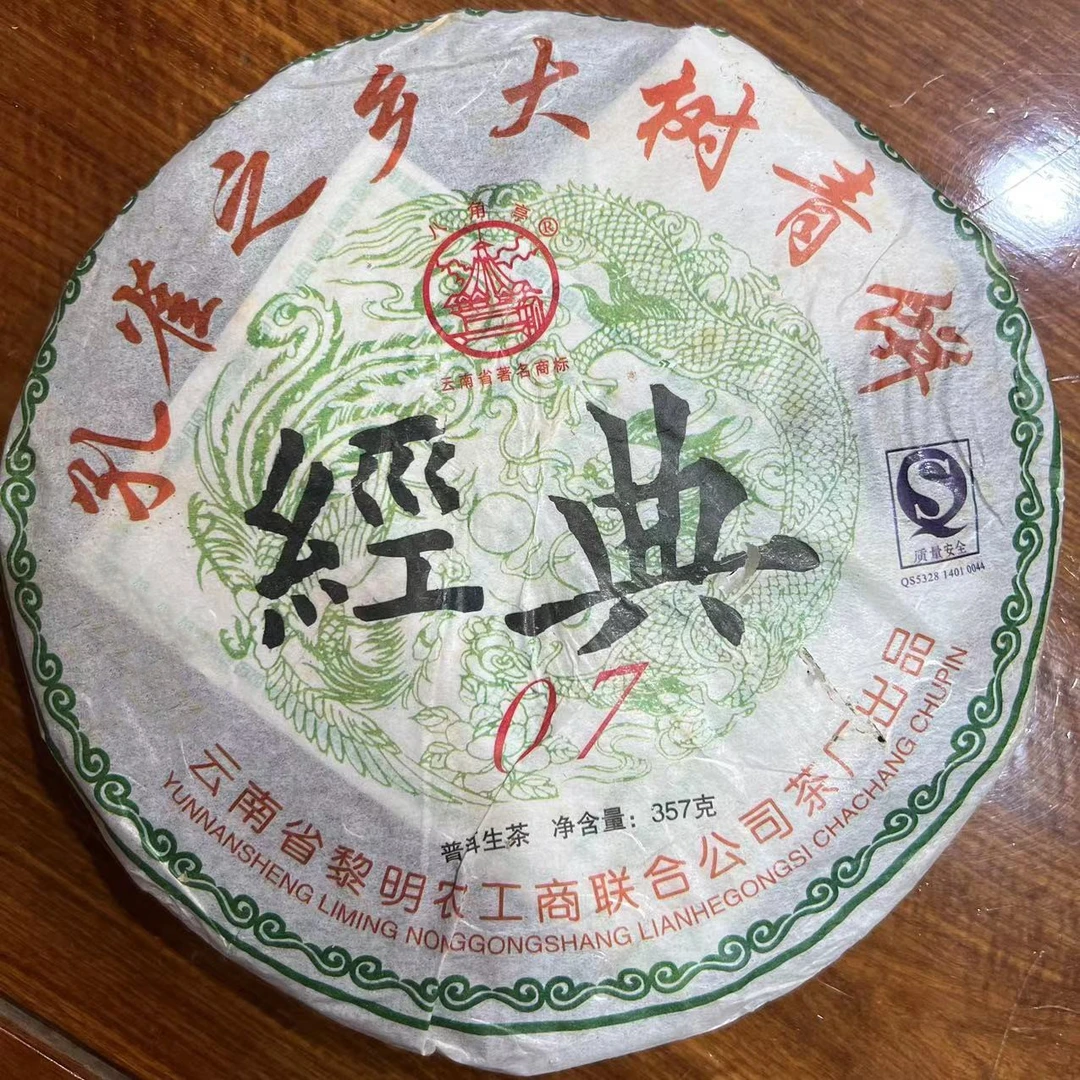 孔雀之乡大树青饼
八角亭®
云南省著名商标
經典
07
质量安全
QS5328 1401 0044
普洱生茶 净含量：357克
云南省黎明农工商联合公司茶厂出品
YUNNANSHENG LIMING NONGGONGSHANG LIANHEGONGSI CHACHANG CHUPIN